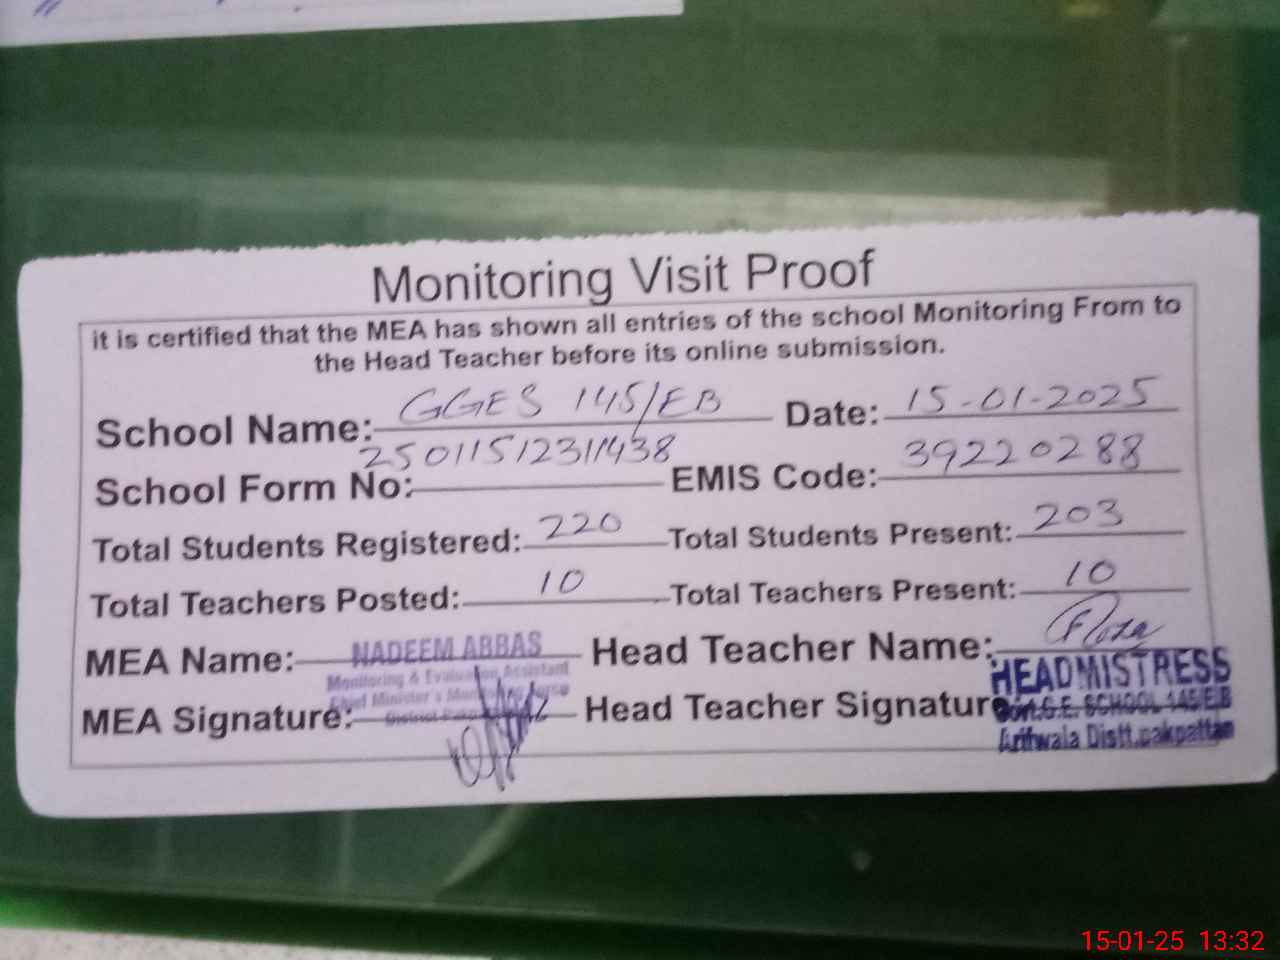 Monitoring Visit Proof
it is certified that the MEA has shown all entries of the school Monitoring From to
the Head Teacher before its online submission.
School Name: GGES 145/EB Date: 15-01-2025
School Form No: 25011512311438 EMIS Code: 39220288
Total Students Registered: 220 Total Students Present: 203
Total Teachers Posted: 10 Total Teachers Present: 10
MEA Name: NADEEM ABBAS Head Teacher Name:
Monitoring & Evaluation Assistant
HEADMISTRESS
Chief Minister's
MEA Signature: Head Teacher Signature
Govt.G.E. SCHOOL 145/E.B
District
Arifwala Distt.pakpattan
15-01-25 13:32